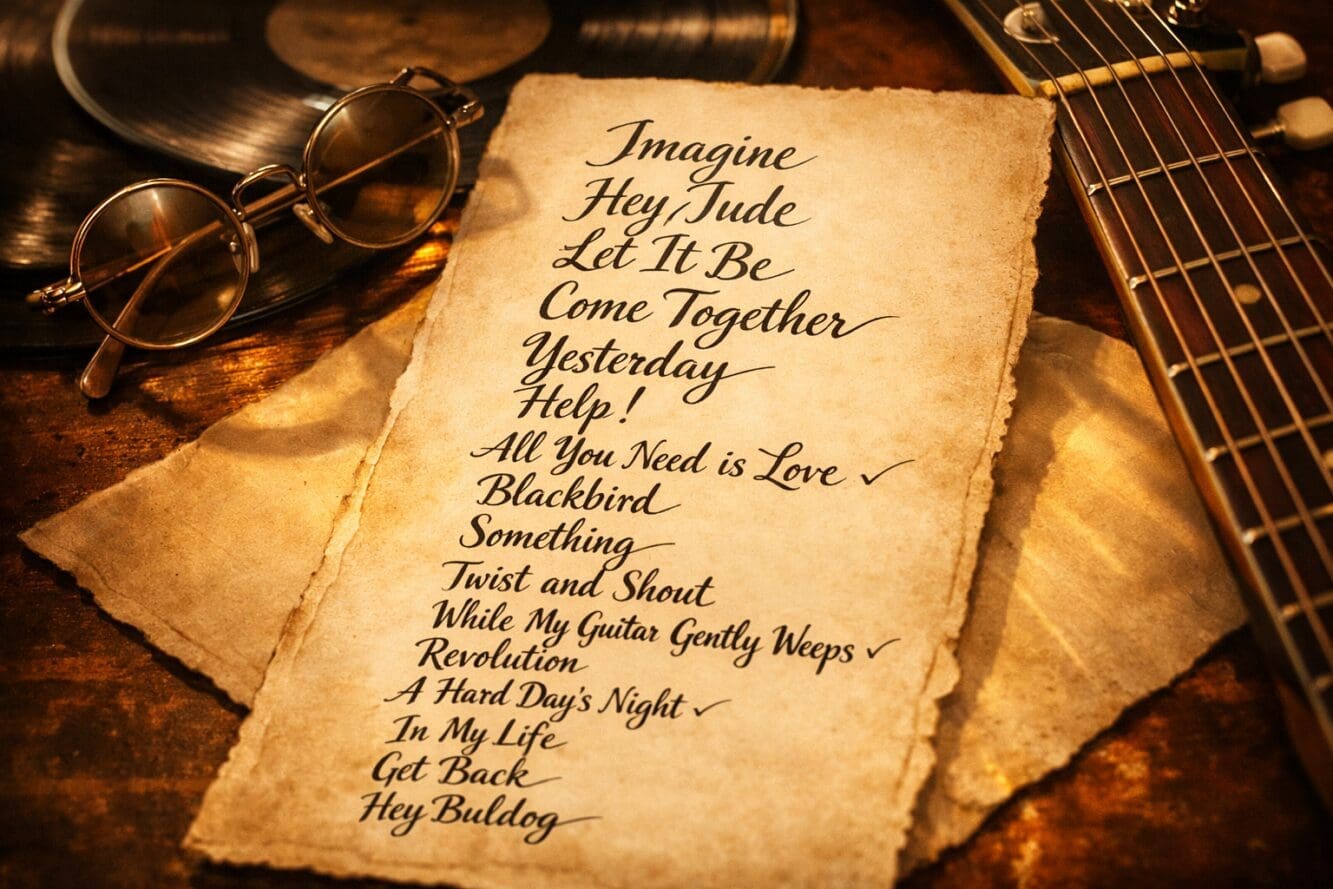 Imagine
Hey, Jude
Let It Be
Come Together
Yesterday
Help!
All You Need is Love ✓
Blackbird
Something
Twist and Shout
While My Guitar Gently Weeps ✓
Revolution
A Hard Day's Night ✓
In My Life
Get Back
Hey Buldog